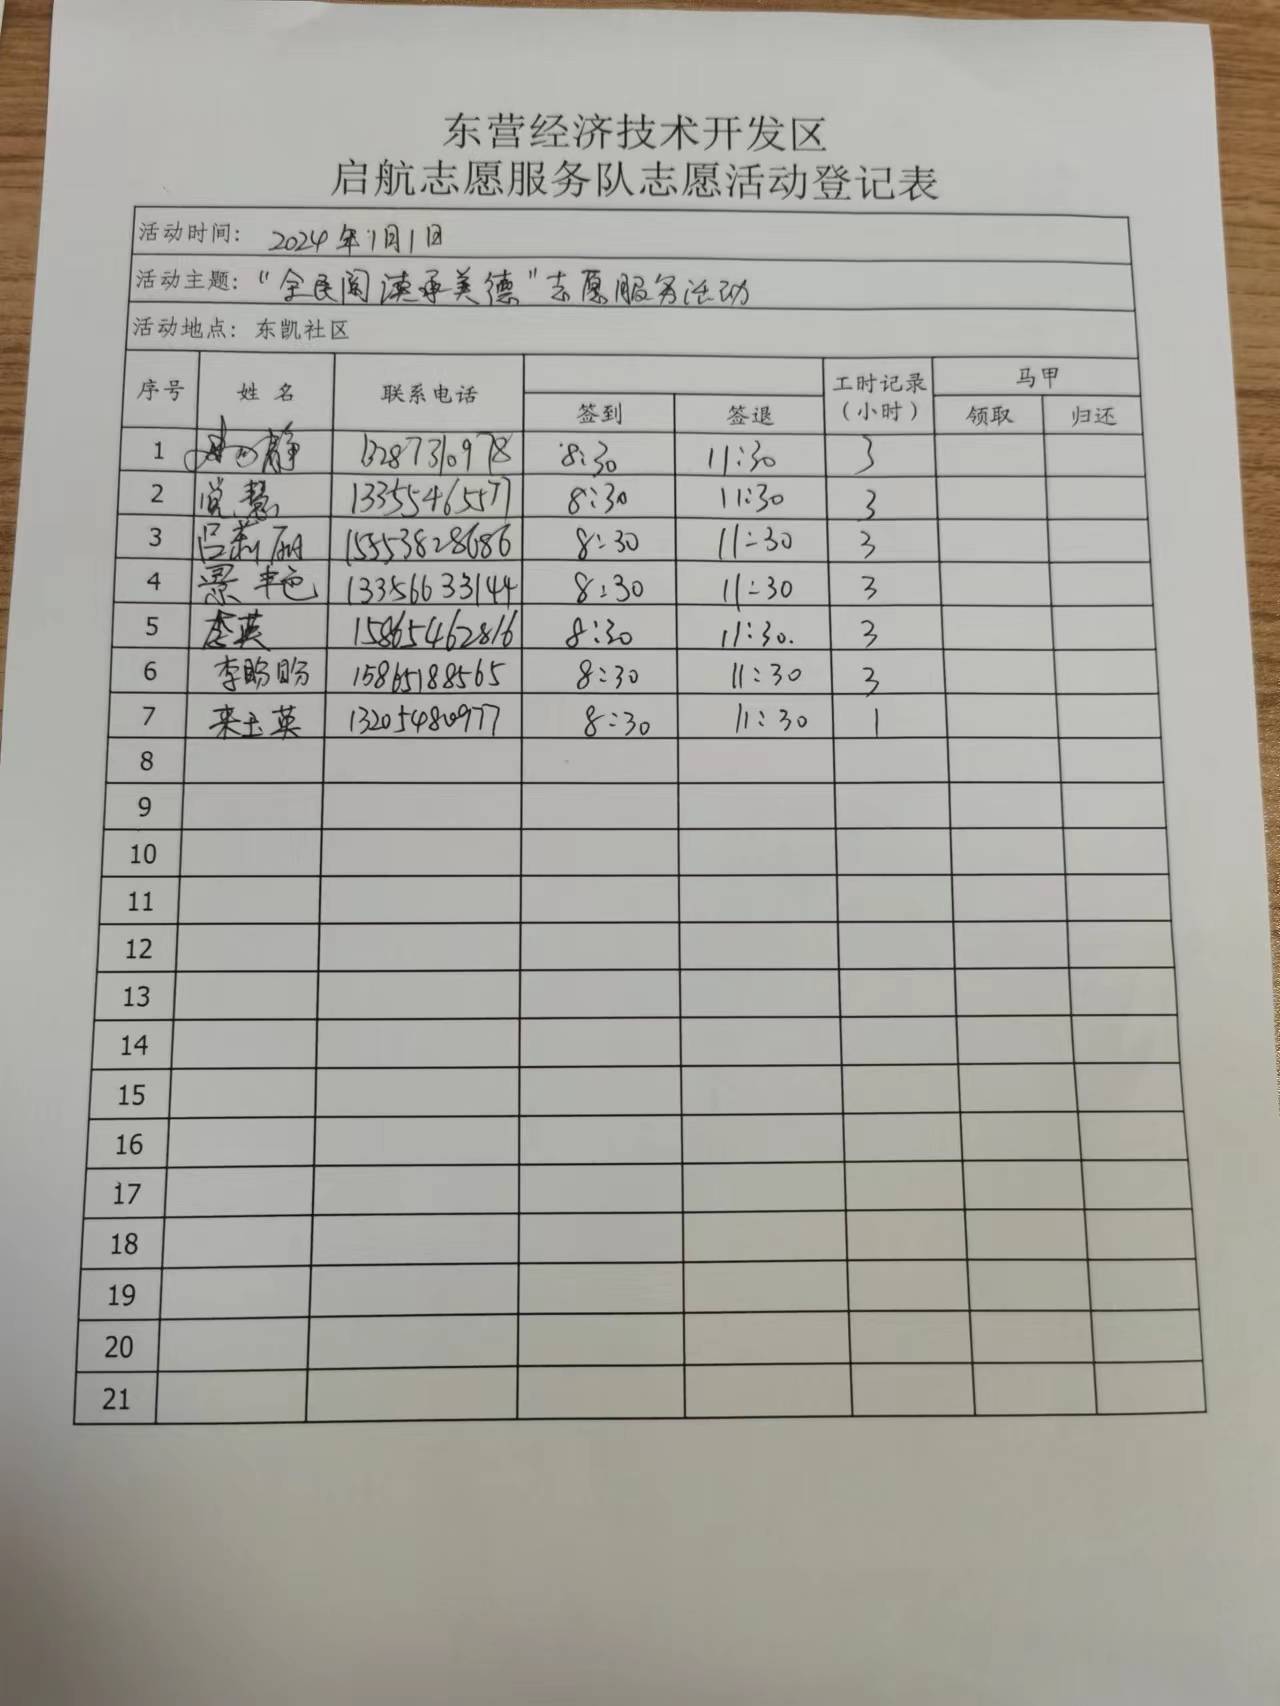 东营经济技术开发区
启航志愿服务队志愿活动登记表
活动时间: 2024年1月1日
活动主题: "全民阅读承美德"志愿服务活动
活动地点: 东凯社区
序号 姓名 联系电话 签到 签退 工时记录(小时) 马甲 领取 归还
1 静 13287310978 8:30 11:30 3
2 慧 13355465577 8:30 11:30 3
3 吕莉丽 15553828686 8:30 11:30 3
4 景艳 13356633144 8:30 11:30 3
5 李英 15865462816 8:30 11:30. 3
6 李盼盼 15865188565 8:30 11:30 3
7 来玉英 13205480977 8:30 11:30 1
8
9
10
11
12
13
14
15
16
17
18
19
20
21